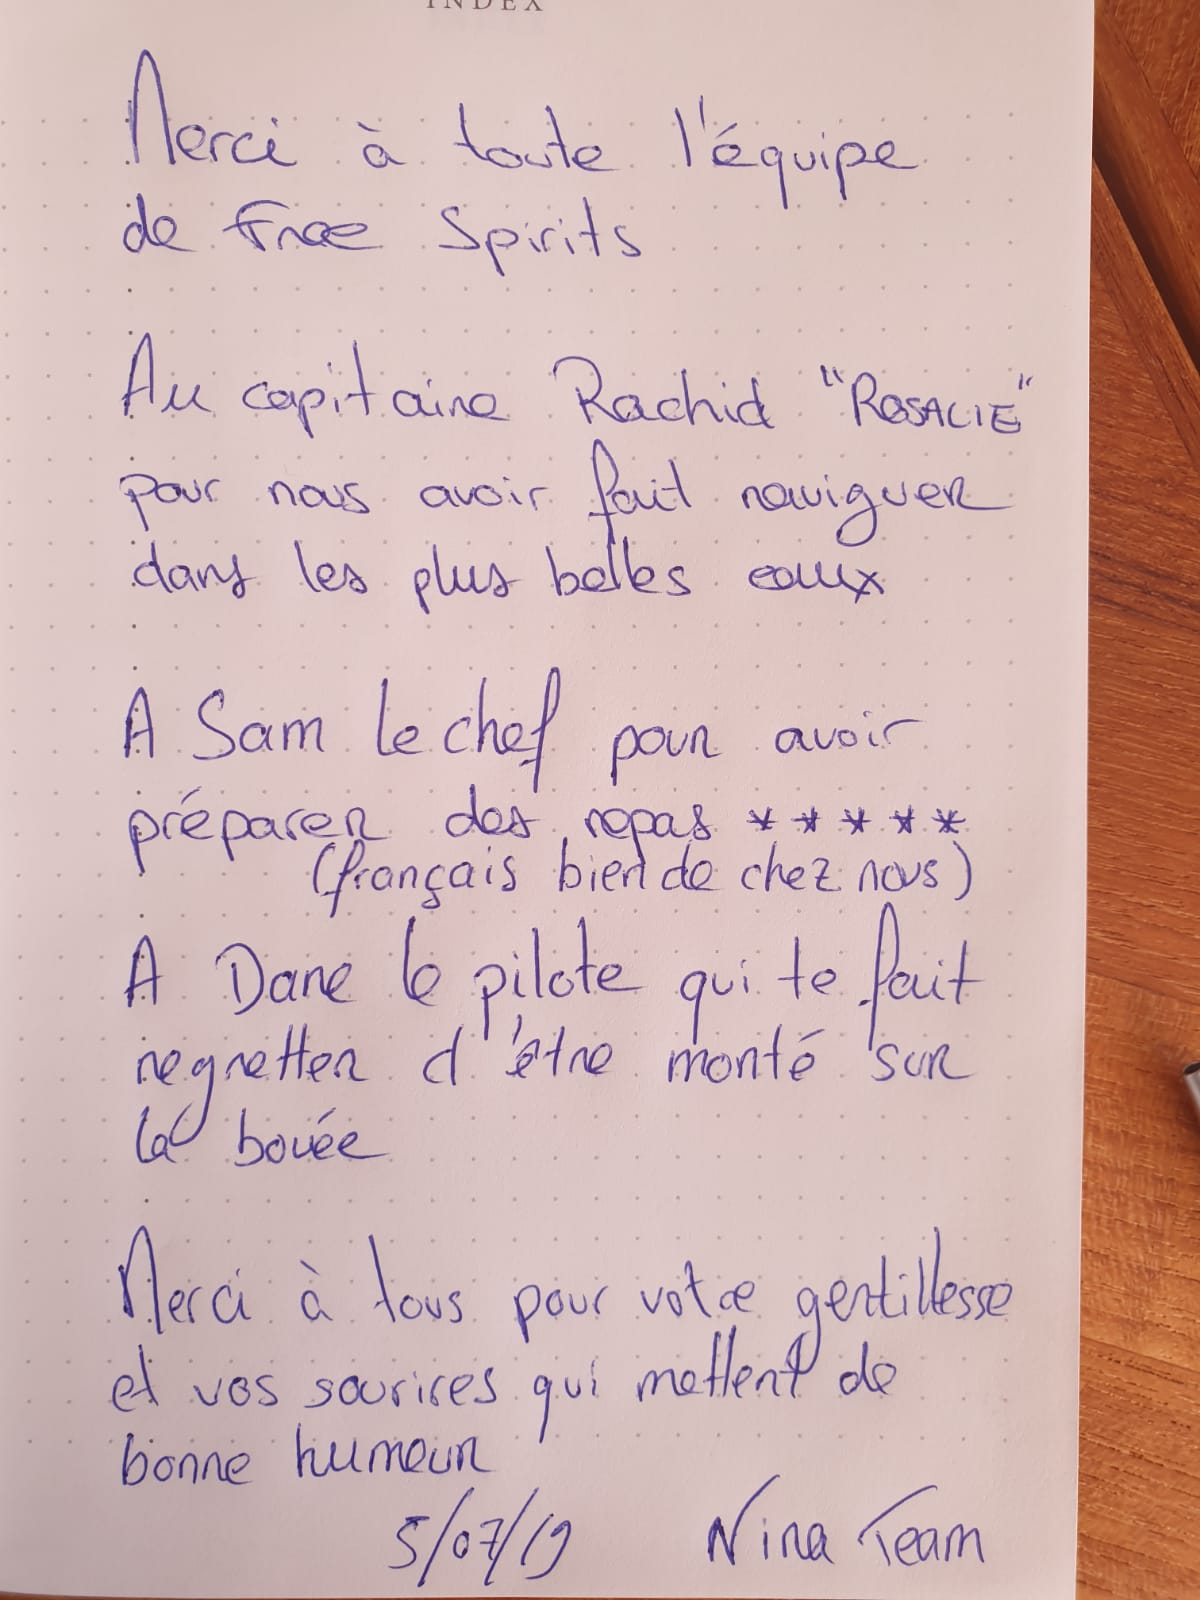 INDEX
Merci à toute l'équipe
de Free Spirits
Au capitaine Rachid "ROSALIE"
pour nous avoir fait naviguer
dans les plus belles eaux
A Sam le chef pour avoir
préparer des repas *****
(français bien de chez nous)
A Dane le pilote qui te fait
regretter d'être monté sur
la bouée
Merci à tous pour votre gentillesse
et vos sourires qui mettent de
bonne humeur
5/07/19 Nina Team